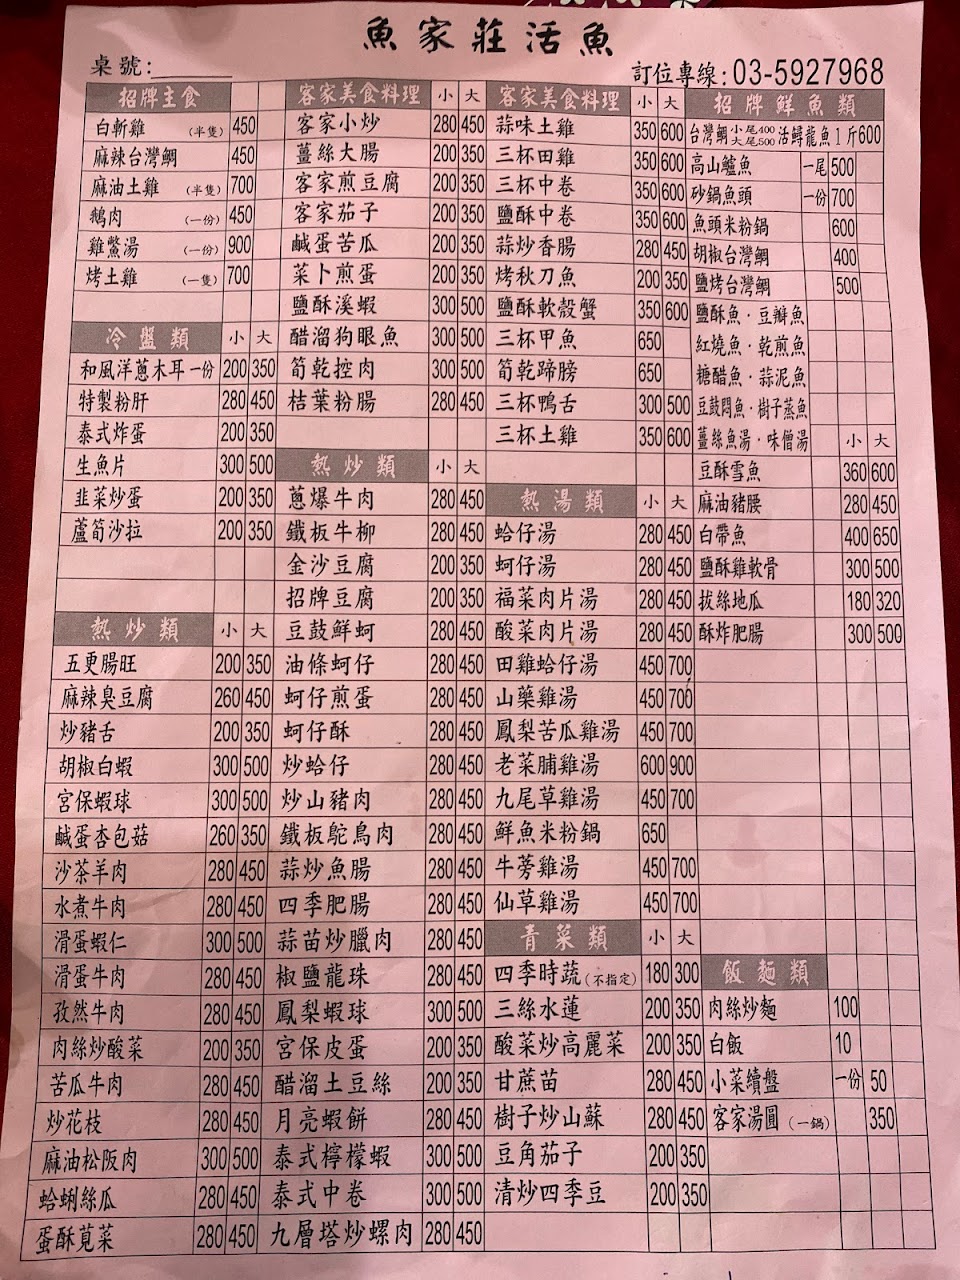 魚家莊活魚
桌號:
訂位專線:03-5927968
招牌主食
白斬雞 (半隻) 450
麻辣台灣鯛 450
麻油土雞 (半隻) 700
鵝肉 (一份) 450
雞鱉湯 (一份) 900
烤土雞 (一隻) 700
冷盤類 小 大
和風洋蔥木耳 一份 200 350
特製粉肝 280 450
泰式炸蛋 200 350
生魚片 300 500
韭菜炒蛋 200 350
蘆筍沙拉 200 350
熱炒類 小 大
五更腸旺 200 350
麻辣臭豆腐 260 450
炒豬舌 200 350
胡椒白蝦 300 500
宮保蝦球 300 500
鹹蛋杏包菇 260 350
沙茶羊肉 280 450
水煮牛肉 280 450
滑蛋蝦仁 300 500
滑蛋牛肉 280 450
孜然牛肉 280 450
肉絲炒酸菜 200 350
苦瓜牛肉 280 450
炒花枝 280 450
麻油松阪肉 300 500
蛤蜊絲瓜 280 450
蛋酥莧菜 280 450
客家美食料理 小 大
客家小炒 280 450
薑絲大腸 200 350
客家煎豆腐 200 350
客家茄子 200 350
鹹蛋苦瓜 200 350
菜卜煎蛋 200 350
鹽酥溪蝦 300 500
醋溜狗眼魚 300 500
筍乾控肉 300 500
桔葉粉腸 280 450
熱炒類 小 大
蔥爆牛肉 280 450
鐵板牛柳 280 450
金沙豆腐 200 350
招牌豆腐 200 350
豆鼓鮮蚵 280 450
油條蚵仔 280 450
蚵仔煎蛋 280 450
蚵仔酥 280 450
炒蛤仔 280 450
炒山豬肉 280 450
鐵板鴕鳥肉 280 450
蒜炒魚腸 280 450
四季肥腸 280 450
蒜苗炒臘肉 280 450
椒鹽龍珠 280 450
鳳梨蝦球 300 500
宮保皮蛋 200 350
醋溜土豆絲 200 350
月亮蝦餅 280 450
泰式檸檬蝦 300 500
泰式中卷 300 500
九層塔炒螺肉 280 450
客家美食料理 小 大
蒜味土雞 350 600
三杯田雞 350 600
三杯中卷 350 600
鹽酥中卷 350 600
蒜炒香腸 280 450
烤秋刀魚 200 350
鹽酥軟殼蟹 350 600
三杯甲魚 650
筍乾蹄膀 650
三杯鴨舌 300 500
三杯土雞 350 600
熱湯類 小 大
蛤仔湯 280 450
蚵仔湯 280 450
福菜肉片湯 280 450
酸菜肉片湯 280 450
田雞蛤仔湯 450 700
山藥雞湯 450 700
鳳梨苦瓜雞湯 450 700
老菜脯雞湯 600 900
九尾草雞湯 450 700
鮮魚米粉鍋 650
牛蒡雞湯 450 700
仙草雞湯 450 700
青菜類 小 大
四季時蔬(不指定) 180 300
三絲水蓮 200 350
酸菜炒高麗菜 200 350
甘蔗苗 280 450
樹子炒山蘇 280 450
豆角茄子 200 350
清炒四季豆 200 350
招牌鮮魚類
台灣鯛 小尾400 大尾500 活鱘龍魚1斤600
高山鱸魚 一尾 500
砂鍋魚頭 一份 700
魚頭米粉鍋 600
胡椒台灣鯛 400
鹽烤台灣鯛 500
鹽酥魚·豆瓣魚
紅燒魚·乾煎魚
糖醋魚·蒜泥魚
豆鼓悶魚·樹子蒸魚
薑絲魚湯·味僧湯 小 大
豆酥雪魚 360 600
麻油豬腰 280 450
白帶魚 400 650
鹽酥雞軟骨 300 500
拔絲地瓜 180 320
酥炸肥腸 300 500
飯麵類
肉絲炒麵 100
白飯 10
小菜續盤 一份 50
客家湯圓 (一鍋) 350